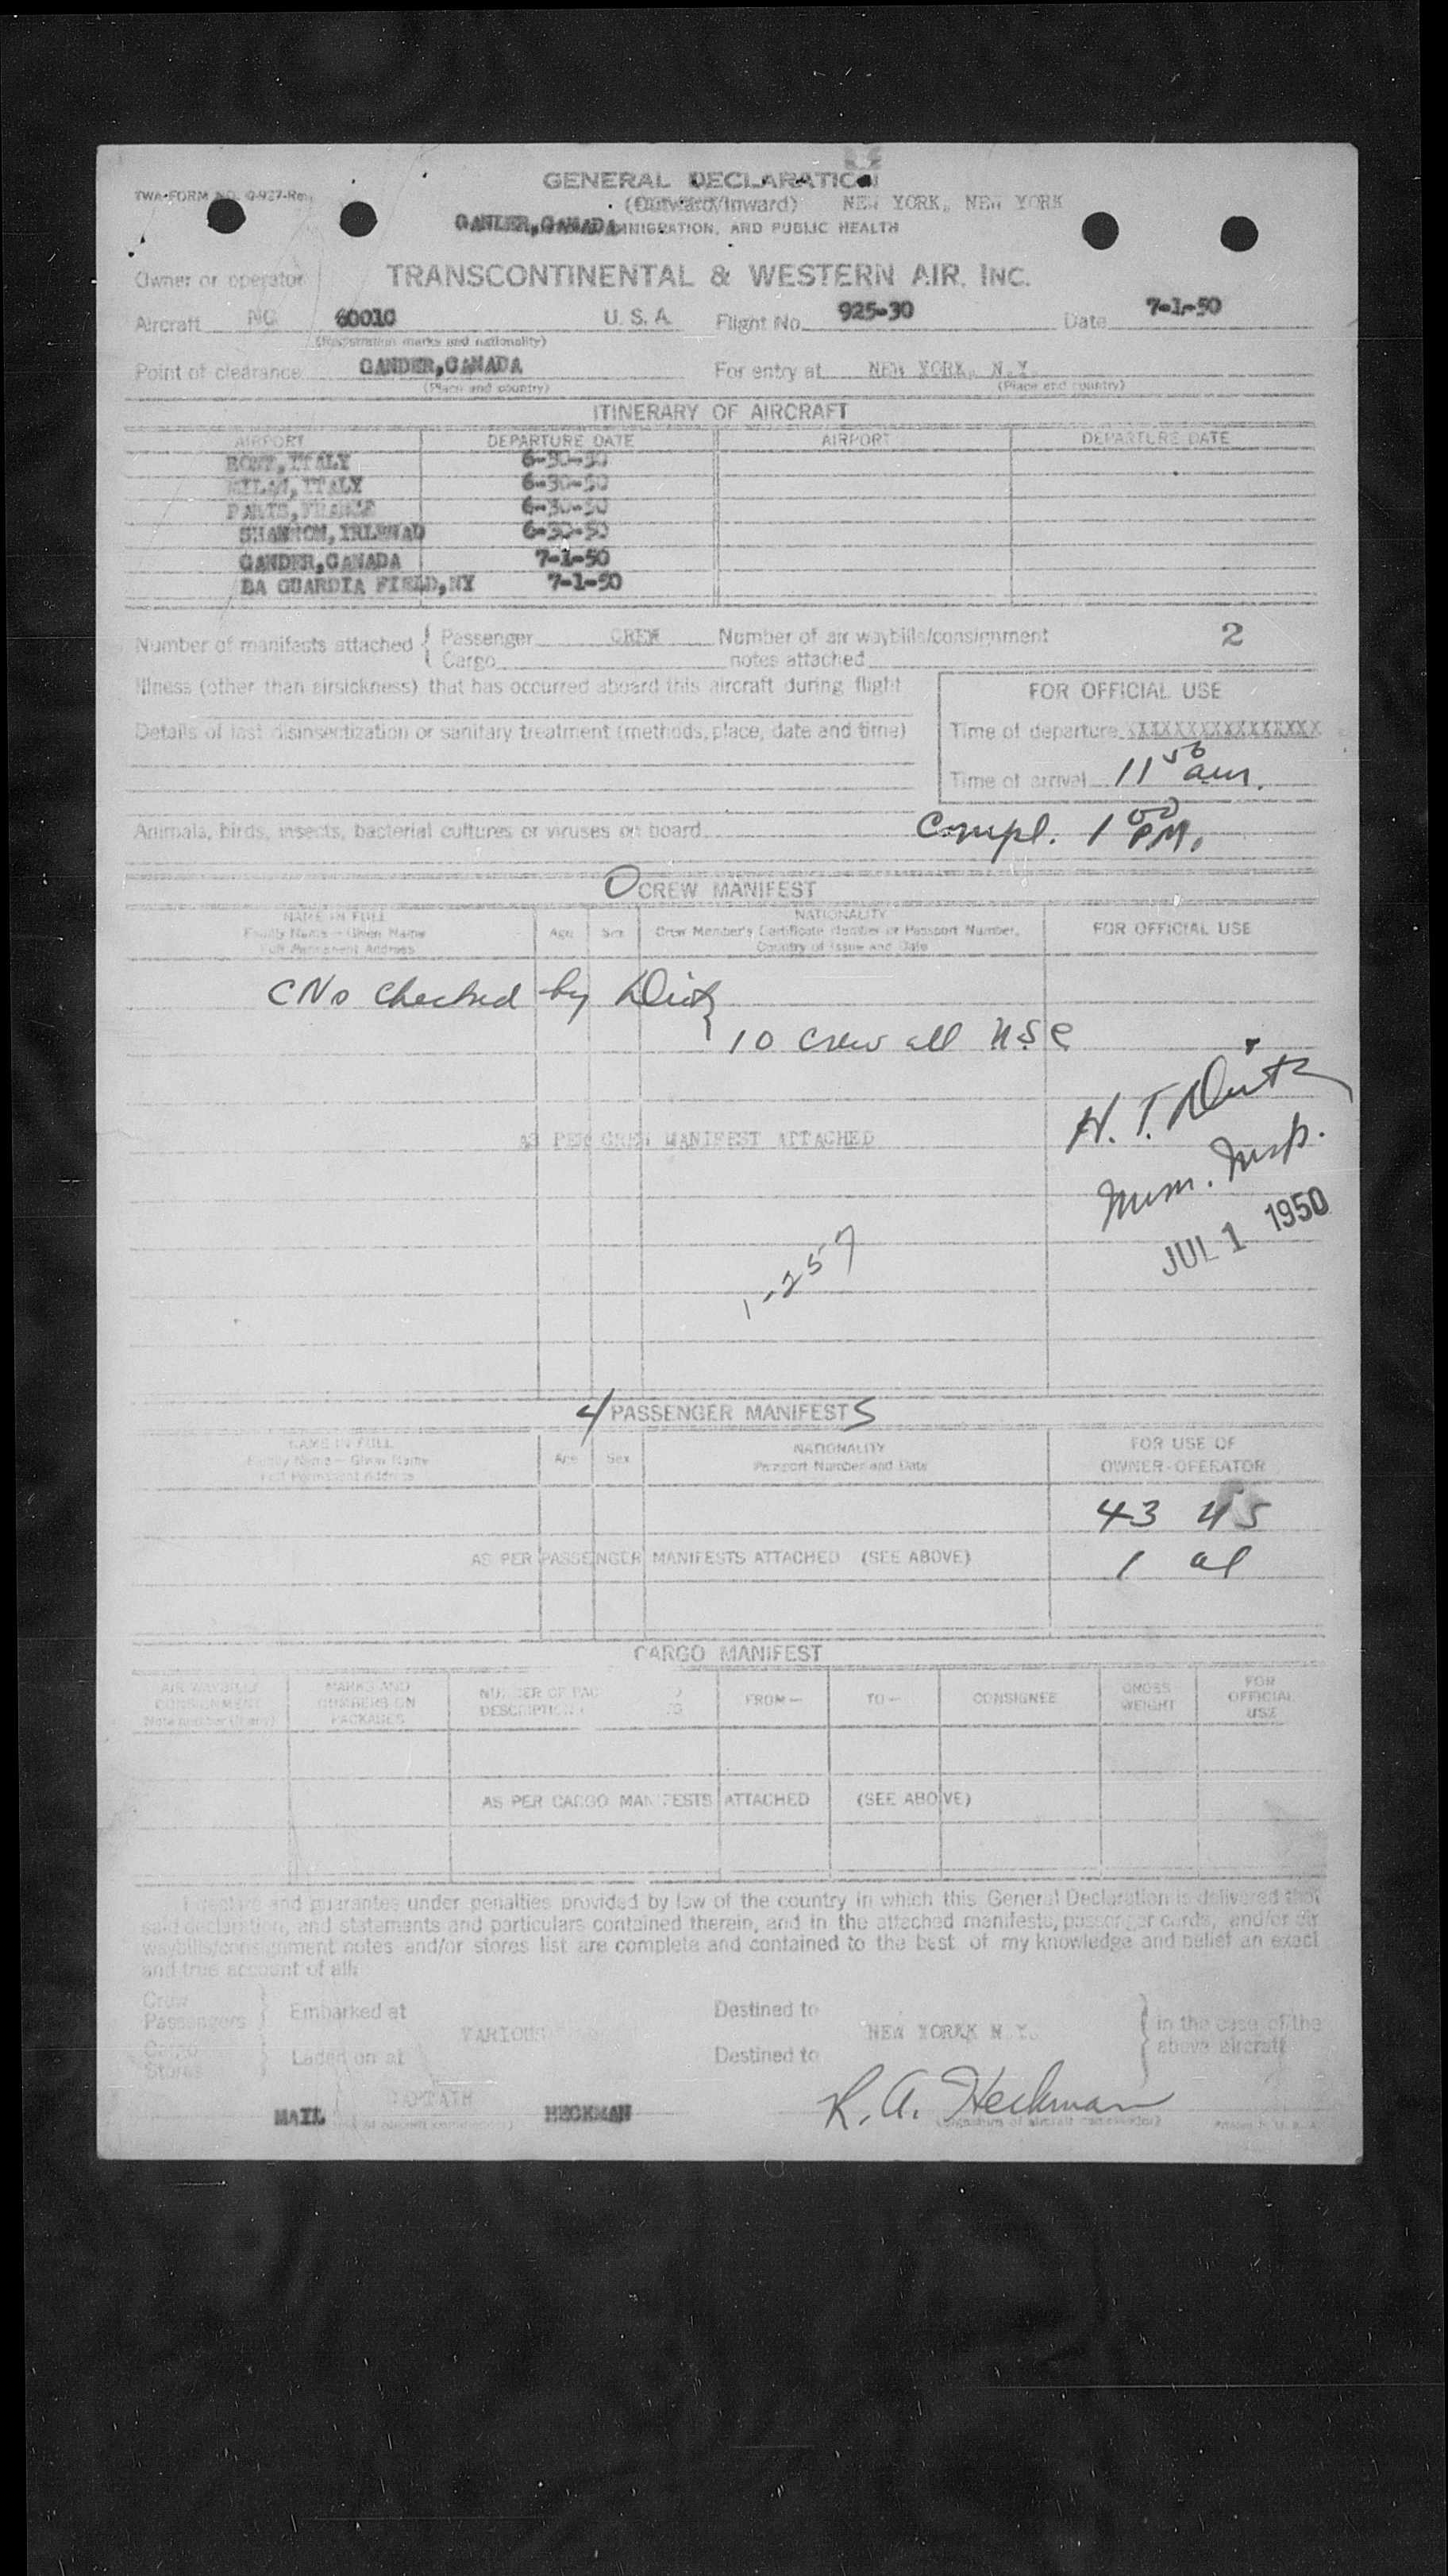 GENERAL DECLARATION
TWA-FORM NO. 0-927-Rev.
(Outward/Inward) NEW YORK, NEW YORK
GANDER, CANADA IMMIGRATION, AND PUBLIC HEALTH
Owner or operator TRANSCONTINENTAL & WESTERN AIR, INC.
Aircraft NC 60010 U. S. A. Flight No. 925-30 Date 7-1-50
(Registration marks and nationality)
Point of clearance GANDER,CANADA For entry at NEW YORK, N.Y.
(Place and country) (Place and country)
ITINERARY OF AIRCRAFT
AIRPORT DEPARTURE DATE AIRPORT DEPARTURE DATE
ITALY 6-30-50
MILAN, ITALY 6-30-50
PARIS, FRANCE 6-30-50
SHANNON, IRLENAD 6-30-50
GANDER,CANADA 7-1-50
BA GUARDIA FIELD,NY 7-1-50
Number of manifests attached { Passenger CREW Number of air waybills/consignment 2
Cargo notes attached
Illness (other than airsickness) that has occurred aboard this aircraft during flight
FOR OFFICIAL USE
Details of last disinsectization or sanitary treatment (methods, place, date and time)
Time of departure XXXXXXXXXXXXXXXXX
Time of arrival 11 50 am.
Animals, birds, insects, bacterial cultures or viruses on board
Compl. 1 00 PM.
0 CREW MANIFEST
NAME IN FULL NATIONALITY
Family Name - Given Name Age Sex Crew Member's Certificate Number or Passport Number, FOR OFFICIAL USE
Full Permanent Address Country of Issue and Date
CNo checked by Dietz
10 crew all USC
H. T. Dietz
AS PER CREW MANIFEST ATTACHED
Imm. Insp.
JUL 1 1950
1-257
4 PASSENGER MANIFESTS
NAME IN FULL NATIONALITY FOR USE OF
Family Name - Given Name Age Sex Passport Number and Date OWNER-OPERATOR
Full Permanent Address
43 US
AS PER PASSENGER MANIFESTS ATTACHED (SEE ABOVE) 1 al
CARGO MANIFEST
AIR WAYBILL/ MARKS AND NUMBER OF PAC FROM — TO — CONSIGNEE GROSS FOR
CONSIGNMENT NUMBERS ON DESCRIPTION WEIGHT OFFICIAL
Note number (if any) PACKAGES USE
AS PER CARGO MANIFESTS ATTACHED (SEE ABOVE)
I declare and guarantee under penalties provided by law of the country in which this General Declaration is delivered that
said declaration, and statements and particulars contained therein, and in the attached manifests, passenger cards, and/or air
waybills/consignment notes and/or stores list are complete and contained to the best of my knowledge and belief an exact
and true account of all:
Crew
Passengers } Embarked at Destined to in the case of the
VARIOUS NEW YORKK N Y. above aircraft
Cargo
Stores } Laded on at Destined to
CAPTAIN
MAIL HECKMAN R. A. Heckman
(Signature of aircraft commander) Printed in U. S. A.